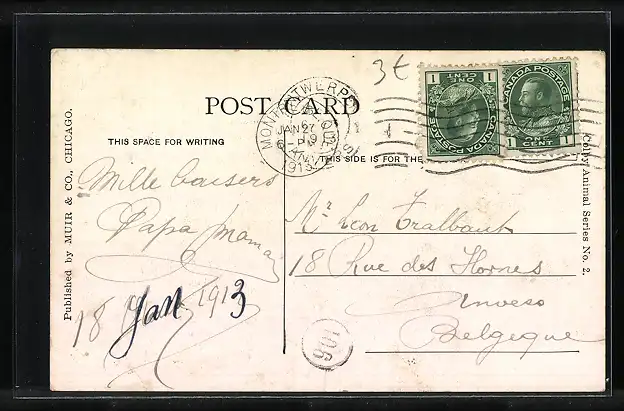 3t
POST CARD
MONT
ANTWERPEN
JAN 27
6 - PM
1913
1 ONE CENT 1
CANADA POSTAGE
CANADA POSTAGE
1 ONE CENT 1
THIS SPACE FOR WRITING
THIS SIDE IS FOR THE
Mille baisers
Papa maman
18 Jan 1913
Mr Leon Tralbaut
18 Rue des Hornes
Anvers
Belgique
106
Published by MUIR & CO., CHICAGO.
Colby Animal Series No. 2.